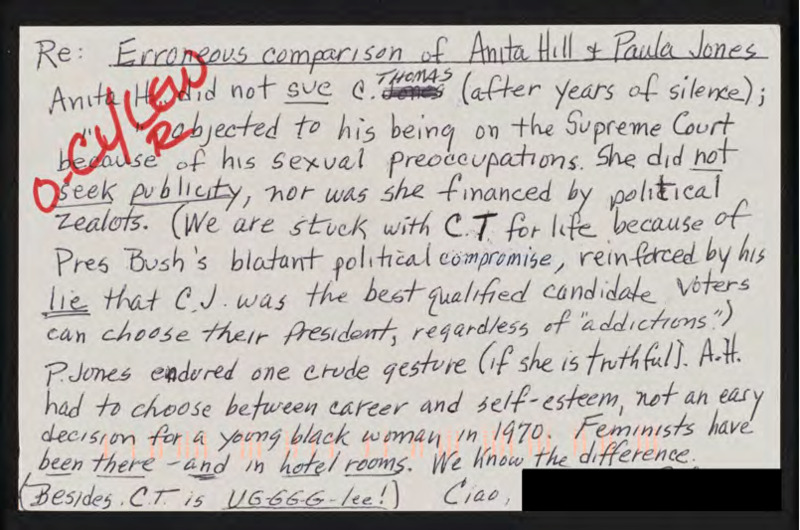 Re: Erroneous comparison of Anita Hill & Paula Jones
THOMAS
Anita H. did not sue C. Jones (after years of silence);
" " objected to his being on the Supreme Court
because of his sexual preoccupations. She did not
seek publicity, nor was she financed by political
zealots. (We are stuck with C.T for life because of
Pres Bush's blatant political compromise, reinforced by his
lie that C.J. was the best qualified candidate Voters
can choose their President, regardless of "addictions".)
P. Jones endured one crude gesture (if she is truthful). A.H.
had to choose between career and self-esteem, not an easy
decision for a young black woman in 1970. Feminists have
been there - and in hotel rooms. We know the difference.
(Besides, C.T. is UG-GG-G-lee!) Ciao,